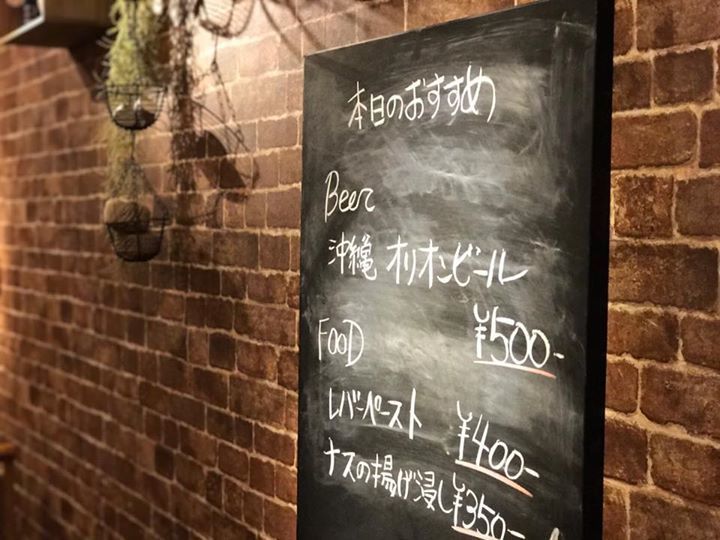 本日のおすすめ
Beer
沖縄 オリオンビール
¥500-
FOOD
レバーペースト ¥400-
ナスの揚げ浸し ¥350-